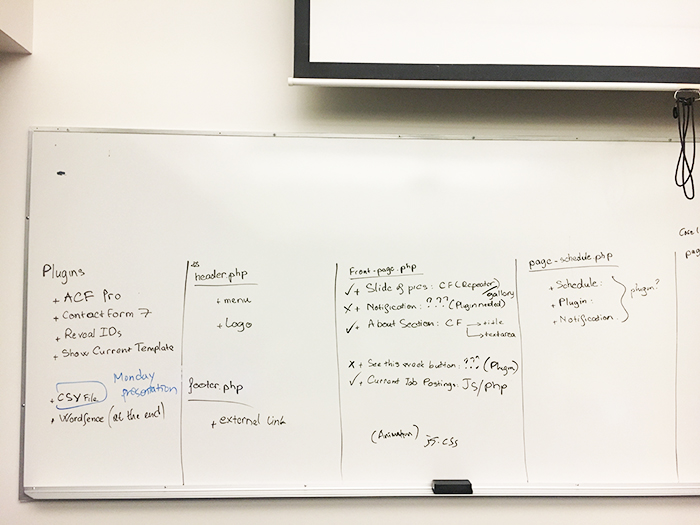 Plugins
+ ACF Pro
+ Contact Form 7
+ Reveal IDs
+ Show Current Template
Monday
presentation
+ CSV File
+ Wordfence (at the end)
header.php
+ menu
+ Logo
footer.php
+ external link
Front-page.php
✓ + Slide of pics: CF (Repeater)
gallery
x + Notification: ??? (Plugin needed)
✓ + About Section: CF → title
→ textarea
x + See this week button: ??? (Plugin)
✓ + Current Job Postings: JS/php
(Animation) js.css
page-schedule.php
+ Schedule:
+ Plugin:
+ Notification:
plugin?